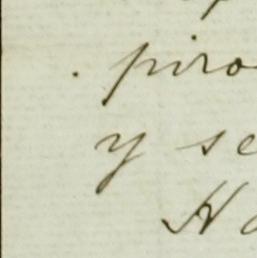 . piro
y se
Ha